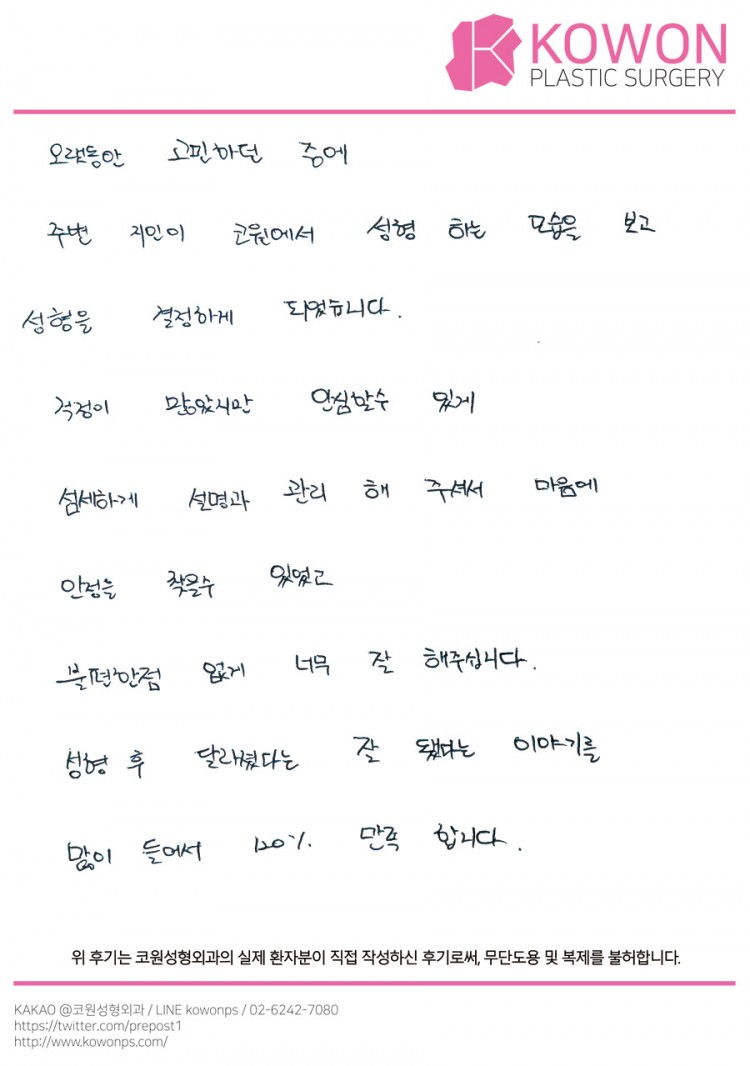 KOWON
PLASTIC SURGERY
오랫동안 고민하던 중에
주변 지인이 코원에서 성형 하는 모습을 보고
성형을 결정하게 되었습니다.
걱정이 많았지만 안심할수 있게
섬세하게 설명과 관리 해 주셔서 마음에
안정을 찾을수 있었고
불편한점 없게 너무 잘 해주십니다.
성형 후 달라졌다는 잘 됐다는 이야기를
많이 들어서 120% 만족 합니다.
위 후기는 코원성형외과의 실제 환자분이 직접 작성하신 후기로써, 무단도용 및 복제를 불허합니다.
KAKAO @코원성형외과 / LINE kowonps / 02-6242-7080
https://twitter.com/prepost1
http://www.kowonps.com/